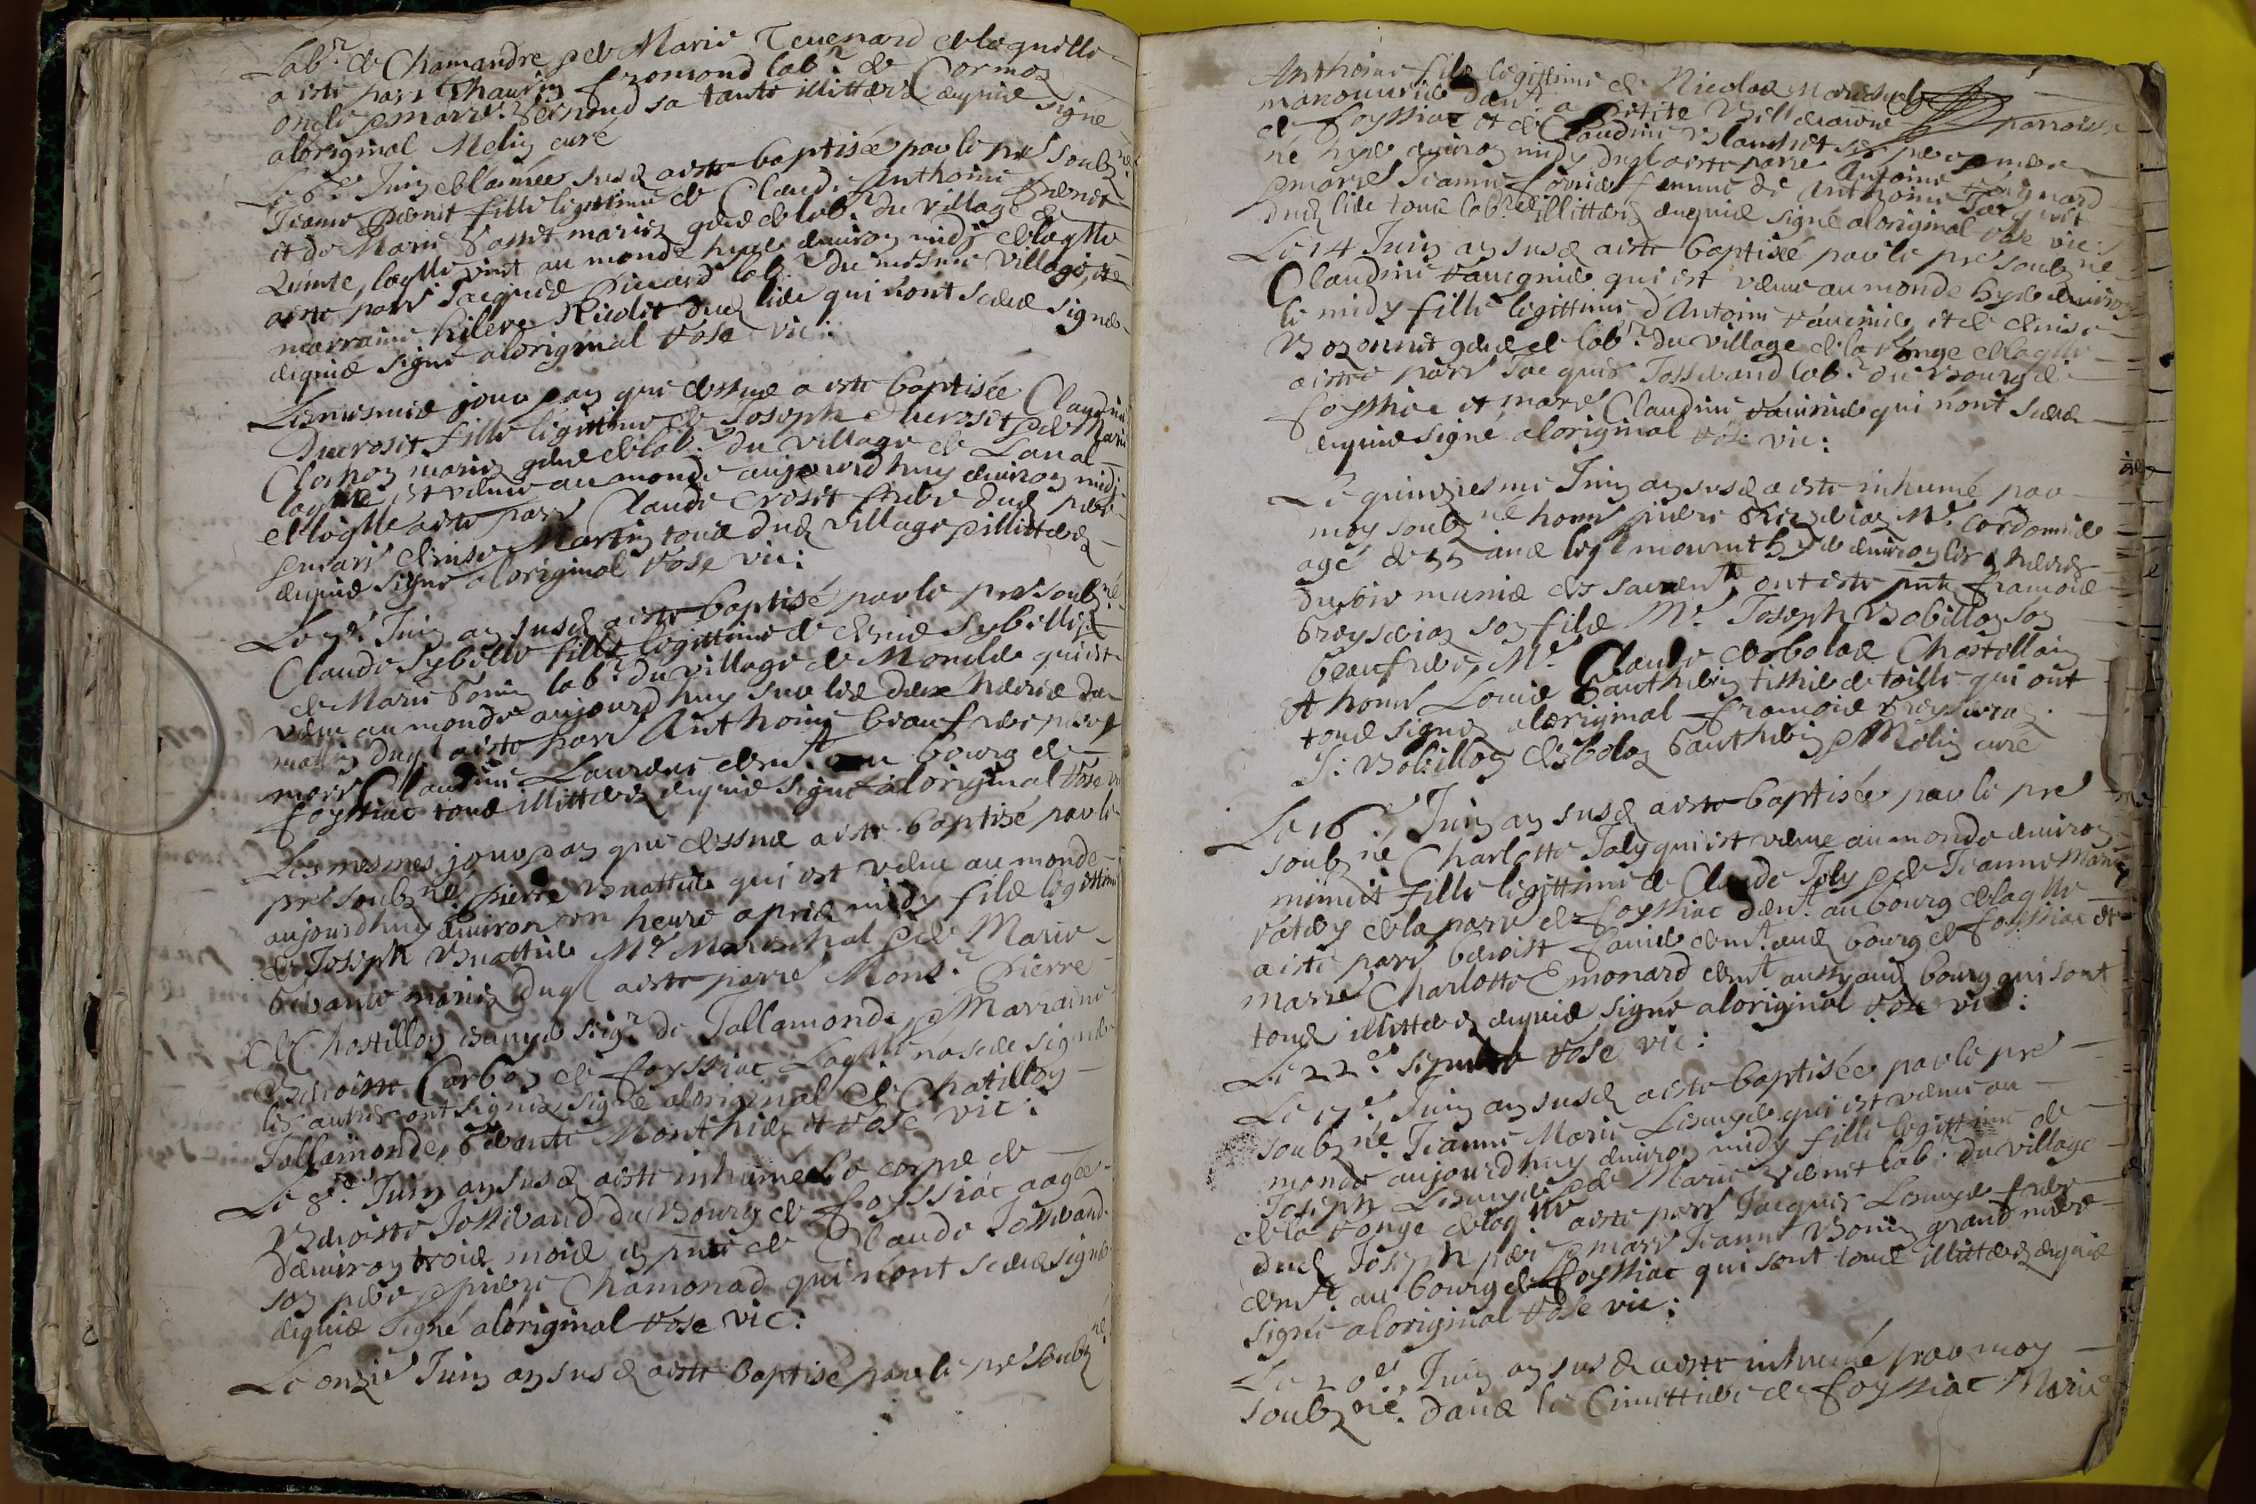 Labr. de Chamandre, & de Marie Teuenard de laquelle
a esté parr Thaurin fromond labr. de Cormoz
oncle & marre. fromond sa tante illitterez enquis signé
aloriginal Meliy curé
Le 6e. Juin de lannée susd a esté baptisée par le prē soubz né
Jeanne Perret fille legittime de Claude Anthoine Perret
et de Marie mariez gens de labr. du village de
laqlle vint au monde hyer enuiron midy de laqlle
a esté parr Jacques Picard labr. du mesme village, et
marraine hilere Nicolet dud lieu qui nont sceus signer
enquis signé aloriginal Vose vic:
Lesmesmes jour & an que dessus a esté baptisée Claudine
Ducroset fille legittime de Joseph Ducroset & de Marie
Clochon mariez gens de labr. du village de Lanal
laqlle est venue au monde aujourdhuy enuiron midy
de laqlle a esté parr Claude Croset frere dud pere
Martin tous dud village & illitterez
enquis signé aloriginal Vose vic:
Le 7e. Juin an susd a esté baptisé par le prē soubz né
Claude Sybelle fils legittime de denis Sybelle &
de Marie Bonin labr. du village de Monilde qui est
venu au monde aujourdhuy sur les deux heures du
matin duql a esté parr Anthoine beaufrere &
marr Claudine Laurens demt. au bourg de
foyssiac tous illitterez enquis signé aloriginal Vose vic
Lesmesmes jour & an que dessus a esté baptisé par le
prē soubz né pierre Buattier qui est venu au monde
aujourdhuy enuiron vn heure apres midy fils legittime
de Joseph Buattier Me Mareschal & de Marie
mariez duql a esté parre Monsr. Pierre
de Chastillon sigr. de Tallamonde & Marraine
Benoiste Carbon de foyssiac Laqlle na sceu signer
les autres ont signez, signé aloriginal de Chatillon
Tallamonde, Monthier et Vose vic:
Le 8e. Juin an susd a esté inhumé le corps de
Benoiste Josserand du Bourg de foyssiac aagée
denuiron trois mois en pntce de Claude Josserand
son pere & pierre Chamonad qui nont sceus signer
enquis signé aloriginal Vose vic:
Le onze Juin an susd a esté baptisé par le prē soubz né
Anthoine fils legittime de Nicolas Mareschal
manouurier demt. a petite Villeneuue parroisse
de foyssiac et de Claudine Blanchet ses pere & mere
né hyer enuiron midy duql a esté parre Antoine
& marre Jeanne femme de Anthoine
dud lieu tous labr. & illitterez enquis signé aloriginal Vose vic:
Le 14 Juin an susd a esté baptisée par le prē soubz né
Claudine Vauenier qui est venue au monde hyer enuiron
le midy fille legittime d'Antoine Vauenier, et de denise
Bozonnet gens de labr. du village de la Vonge de laqlle
a esté parr Jacques Josserand labr. du Bourg de
foyssiac et marre Claudine Vauenier qui nont sceus
enquis signé aloriginal Vose vic:
Le quinziesme Juin an susd a esté inhumé par
moy soubz né honn pierre Me. Cordonnier
agé de 55 ans leql mourut hyer enuiron les heures
du soir munis des sacremts ont esté pnts francois
son fils Me. Joseph Bobillon son
beaufrere, Me. Claude desbolas Chastellain
et honn Louis Gauthier tissier de toille qui ont
tous signez aloriginal francois
J: Bobillon desbolas Gauthier & Meliy curé
Le 16e. Juin an susd a esté baptisée par le prē
soubz né Charlotte Joly qui est venue au monde enuiron
minuit fille legittime de Claude Joly & de Jeanne Marie
de la parre de foyssiac demt. au bourg de laqlle
a esté parr benoist demt. aud bourg de foyssiac et
marre Charlotte Emonard demt. aussy aud bourg qui sont
tous illitterez enquis signé aloriginal Vose vic:
Le 22e. Vose vic:
Le 17e. Juin an susd a esté baptisée par le prē
soubz né Jeanne Marie qui est venue au
monde aujourdhuy enuiron midy fille legittime de
Joseph & de Marie Perret labr. du village
de la Vonge de laqlle a esté parr Jacques frere
dud Joseph pere & marr Jeanne Bonin grand mere
demt. au bourg de foyssiac qui sont tous illitterez enquis
signé aloriginal Vose vic:
Le 20e. Juin an susd a esté inhumé par moy
soubz né. dans le Cimettiere de foyssiac Marie